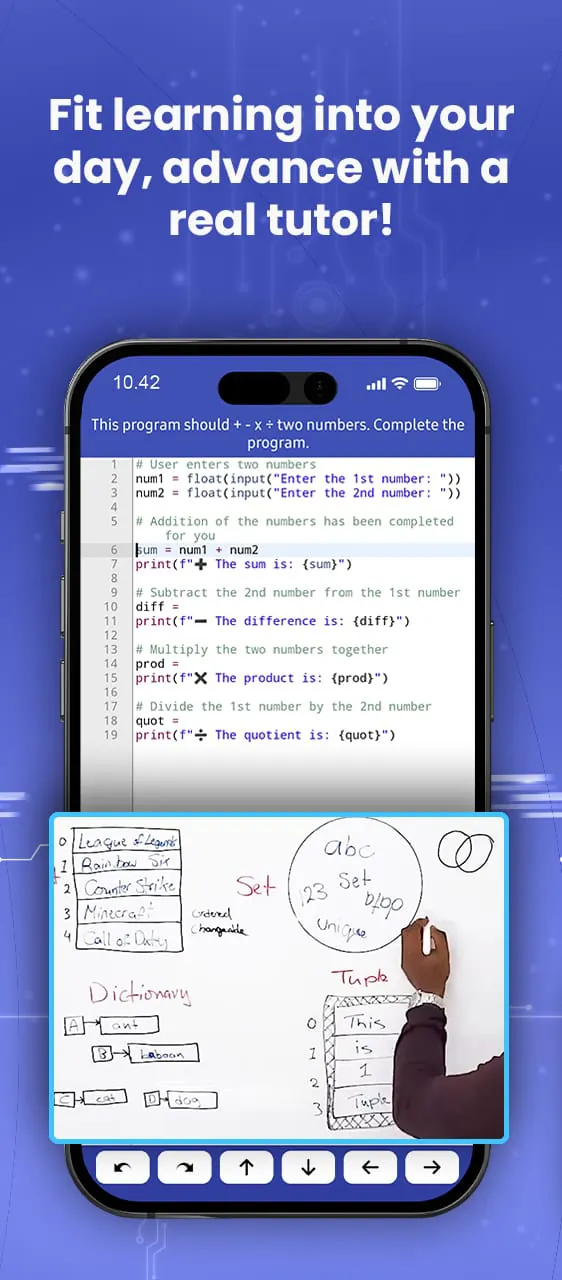 Fit learning into your
day, advance with a
real tutor!
10.42
This program should + - x ÷ two numbers. Complete the
program.
1 # User enters two numbers
2 num1 = float(input("Enter the 1st number: "))
3 num2 = float(input("Enter the 2nd number: "))
4
5 # Addition of the numbers has been completed
for you
6 sum = num1 + num2
7 print(f"➕ The sum is: {sum}")
8
9 # Subtract the 2nd number from the 1st number
10 diff =
11 print(f"➖ The difference is: {diff}")
12
13 # Multiply the two numbers together
14 prod =
15 print(f"✖ The product is: {prod}")
16
17 # Divide the 1st number by the 2nd number
18 quot =
19 print(f"➗ The quotient is: {quot}")
0 League of Legends
1 Rainbow Six
2 Counter Strike
3 Minecraft
4 Call of Duty
ordered
changeable
Set
abc
123 Set
blop
unique
Dictionary
A ant
B baboon
C cat D dog
Tuple
0 This
1 is
2 1
3 Tuple